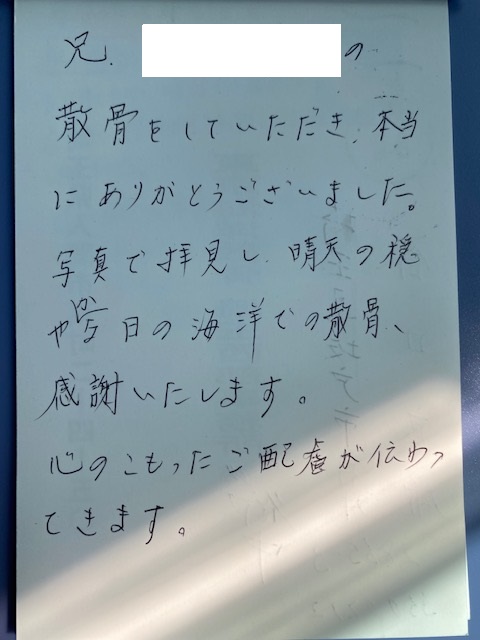 兄、 の
散骨をしていただき、本当
にありがとうございました。
写真で拝見し、晴天の穏
やかな日の海洋での散骨、
感謝いたします。
心のこもったご配慮が伝わっ
てきます。